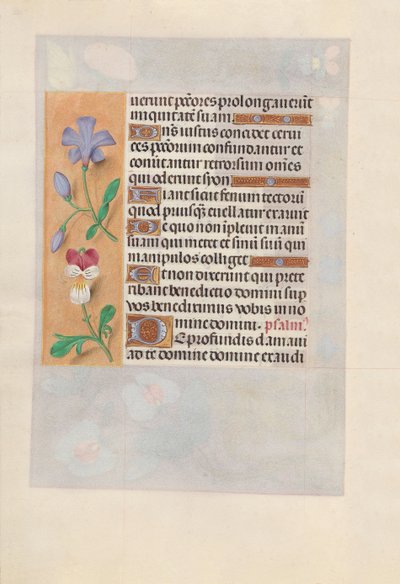 uerunt pctōres prolongauerūt
iniquitatē suam
Dn̄s iustus concidet cerui
ces pctōrum confundantur et
conūtantur retrorsum om̄es
qui oderunt syon
Fiant sicut fenum tectorū
quod priusq̄ euellatur exaruit
De quo non impleuit manū
suam qui metet et sinū suū qui
manipulos colliget
Et non dixerunt qui prete
ribant benedictio domini sup̄
vos benediximus vobis in no
mine domini psalm9
De profundis clamaui
ad te domine domine exaudi